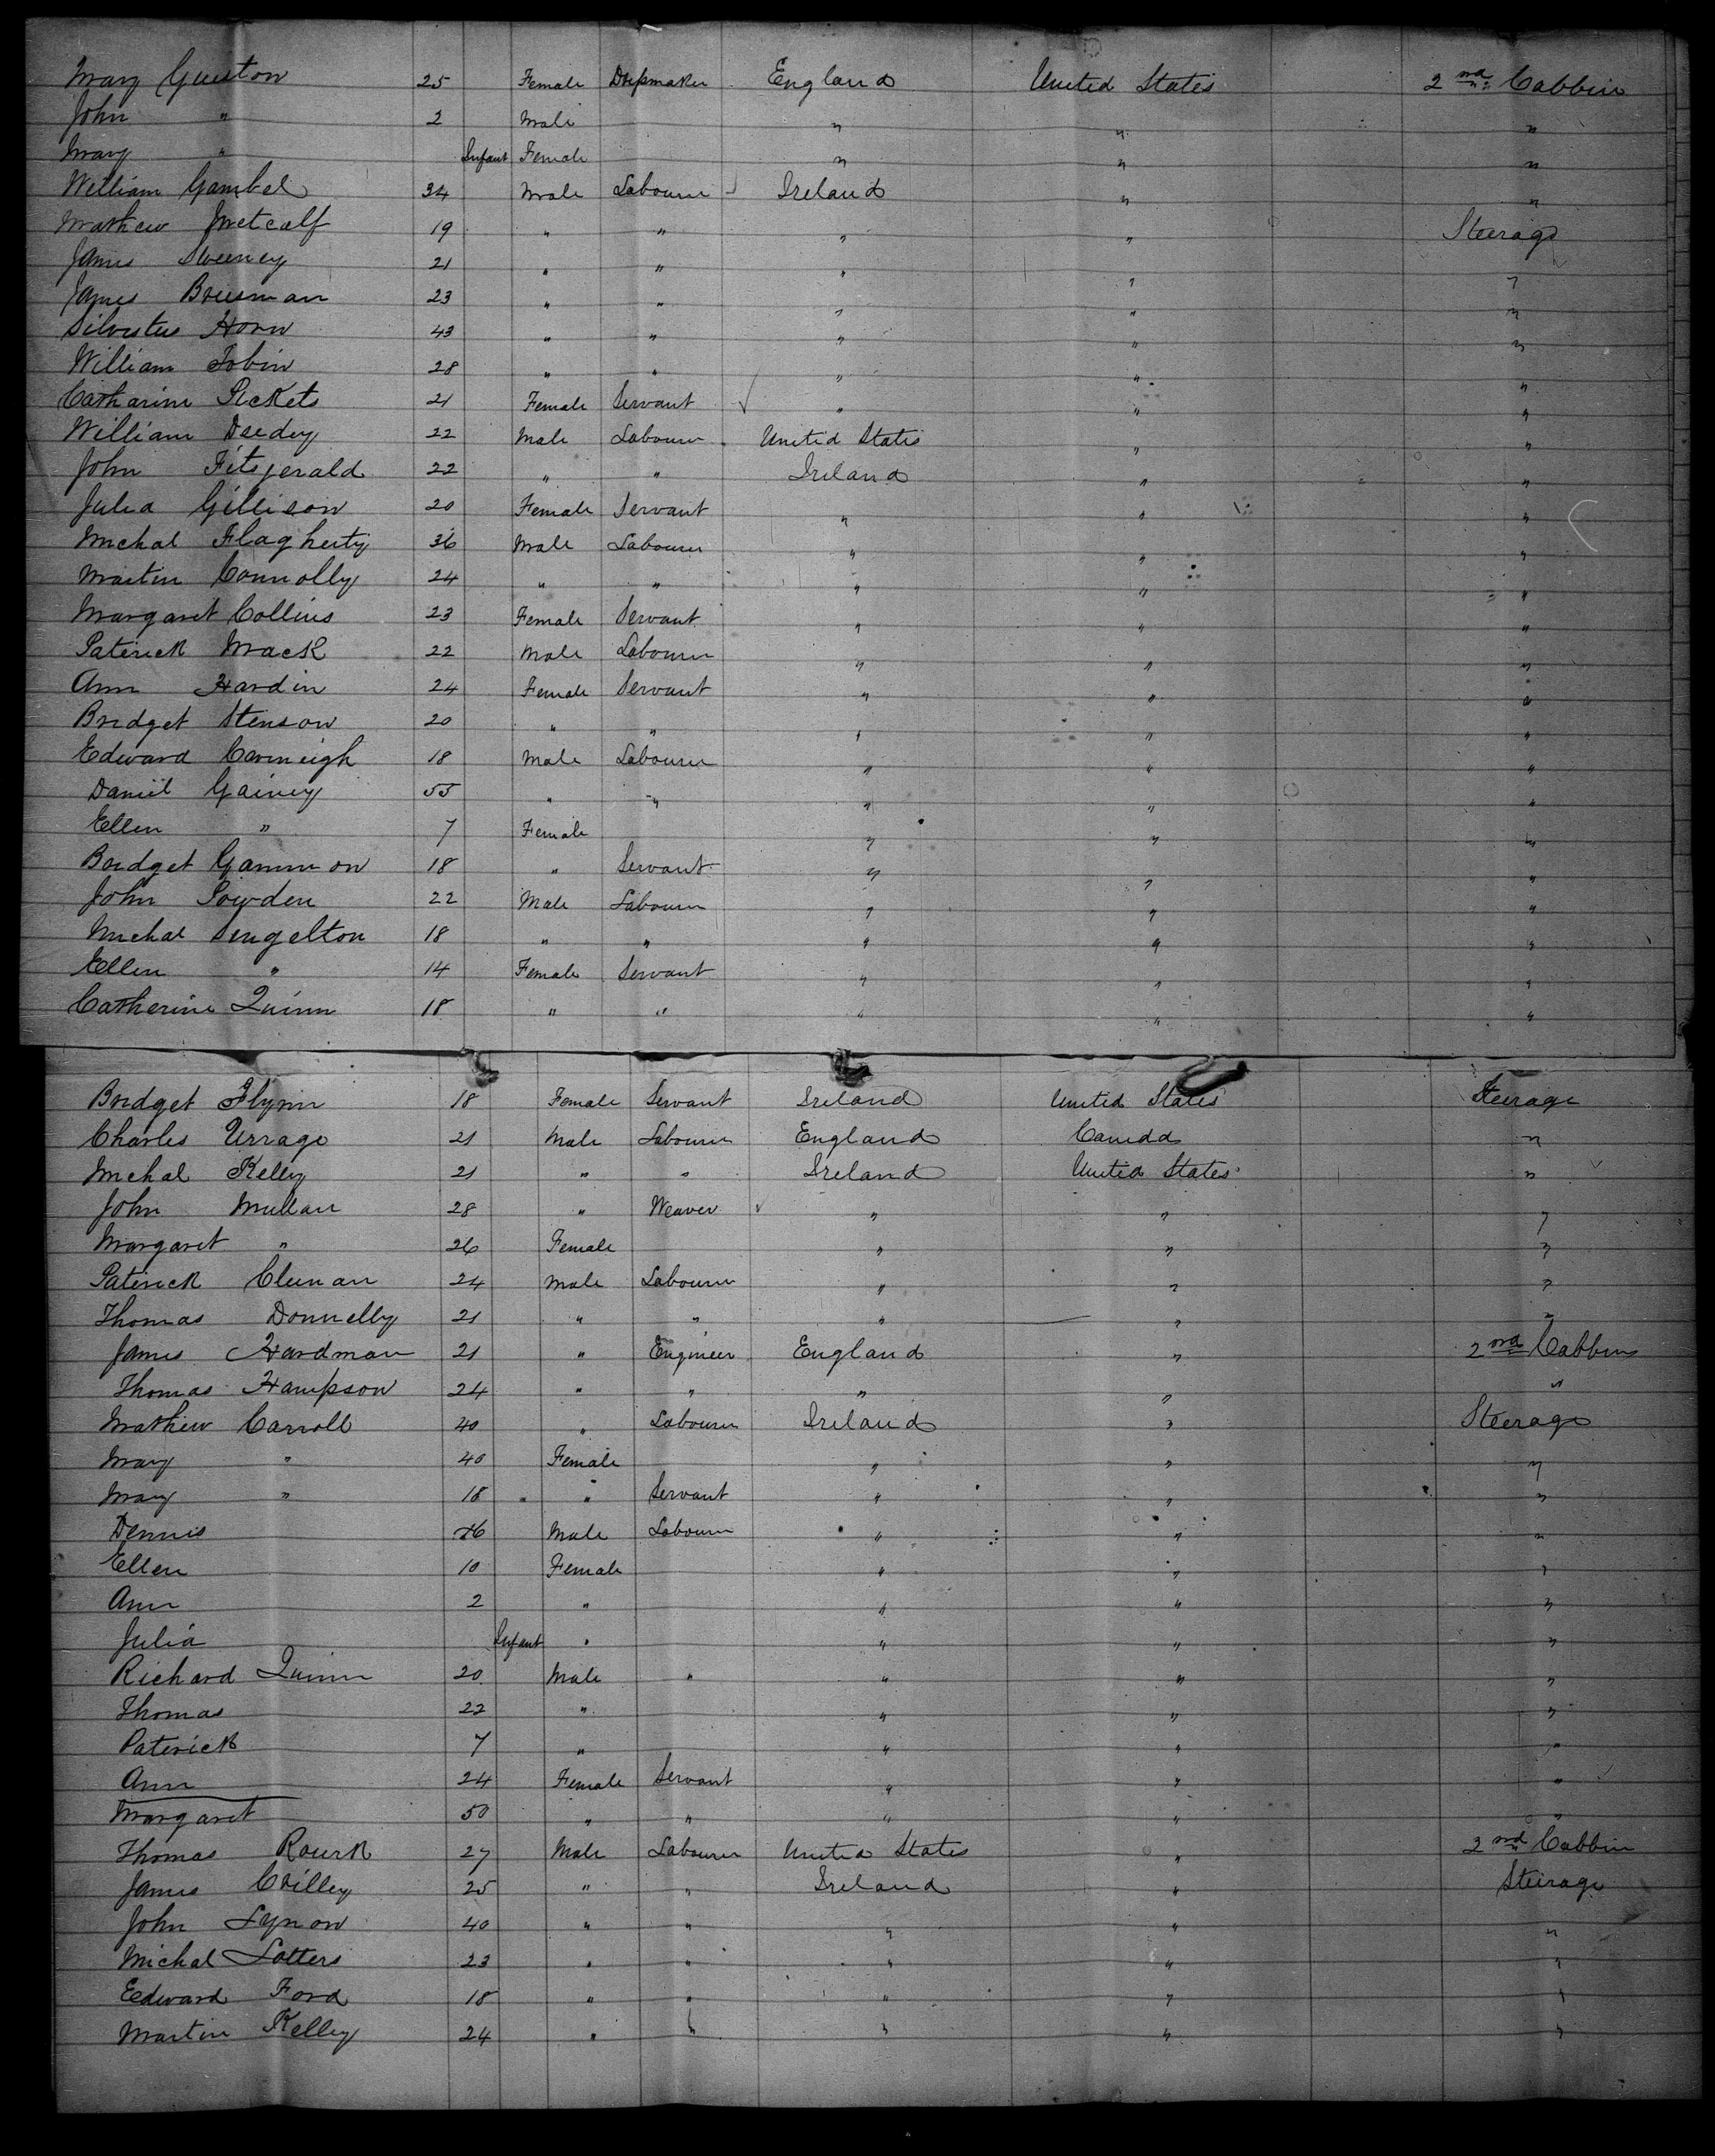 Mary Gueston 25 Female Dressmaker England United States 2nd Cabbin
John " 2 Male " " "
Mary " Infant Female " " "
William Gambel 34 Male Labourer Ireland " "
Mathew Metcalf 19 " " " " Steerage
James Sweeney 21 " " " " "
James Breesman 23 " " " " "
Silvestus Horn 43 " " " " "
William Tobin 28 " " " " "
Catharine Pickets 21 Female Servant " " "
William Deedy 22 Male Labourer United States " "
John Fitsgerald 22 " " Ireland " "
Julia Gillison 20 Female Servant " " "
Michal Flagherty 36 Male Labourer " " "
Martin Connolly 24 " " " " "
Margaret Collins 23 Female Servant " " "
Paterick Mack 22 Male Labourer " " "
Ann Hardin 24 Female Servant " " "
Bridget Stenson 20 " " " " "
Edward Carneigh 18 Male Labourer " " "
Daniel Gainey 55 " " " " "
Ellen " 7 Female " " "
Bridget Gammon 18 " Servant " " "
John Powden 22 Male Labourer " " "
Michal Sengelton 18 " " " " "
Ellen " 14 Female Servant " " "
Catherine Quinn 18 " " " " "
Bridget Flynn 18 Female Servant Ireland United States Steerage
Charles Urrage 21 Male Labourer England Canada "
Michal Kelley 21 " " Ireland United States "
John Mullan 28 " Weaver " " "
Margaret " 26 Female " " "
Paterick Clunan 24 Male Labourer " " "
Thomas Donnelly 21 " " " " "
James Hardman 21 " Engineer England " 2nd Cabbin
Thomas Hampson 24 " " " " "
Mathew Carroll 40 " Labourer Ireland " Steerage
Mary " 40 Female " " "
Mary " 18 " Servant " " "
Dennis 16 Male Labourer " " "
Ellen 10 Female " " "
Ann 2 " " " "
Julia Infant " " " "
Richard Quinn 20 Male " " " "
Thomas 22 " " " "
Paterick 7 " " " "
Ann 24 Female Servant " " "
Margaret 50 " " " " "
Thomas Rourk 27 Male Labourer United States " 2nd Cabbin
James Crilley 25 " " Ireland " Steerage
John Lynon 40 " " " " "
Michal Lotters 23 " " " " "
Eedward Ford 18 " " " " "
Martin Kelley 24 " " " " "